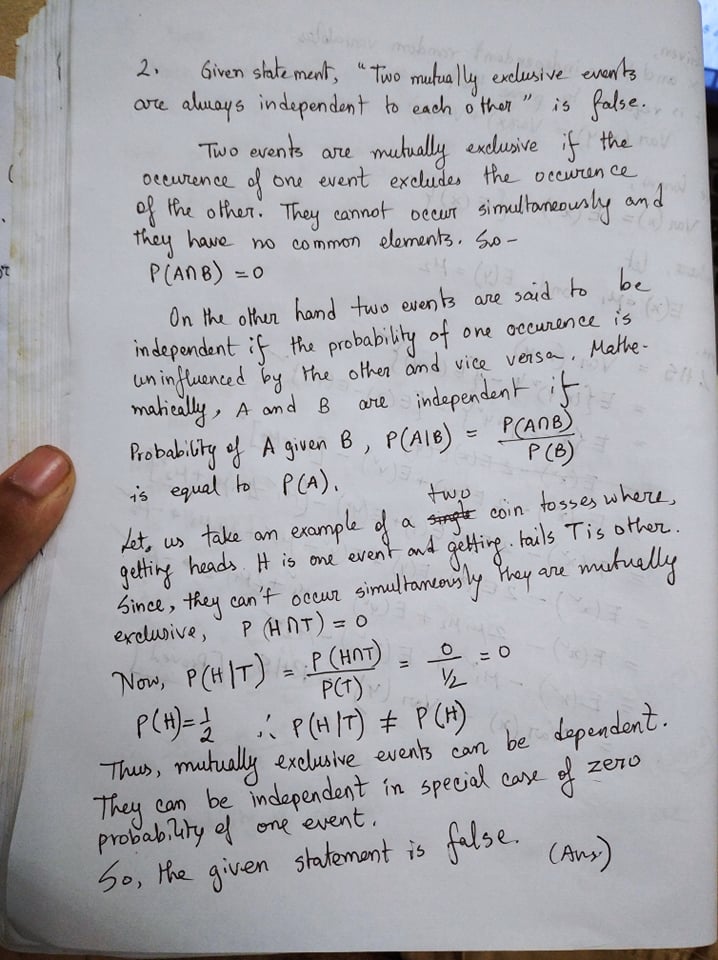 2. Given statement, "Two mutually exclusive events
are always independent to each other" is false.
Two events are mutually exclusive if the
occurence of one event excludes the occurence
of the other. They cannot occur simultaneously and
they have no common elements. So -
P(A∩B) = 0
On the other hand two events are said to be
independent if the probability of one occurence is
uninfluenced by the other and vice versa. Mathe-
matically, A and B are independent if
Probability of A given B, P(A|B) = P(A∩B) / P(B)
is equal to P(A).
Let, us take an example of a two coin tosses where,
getting heads H is one event and getting tails T is other.
Since, they can't occur simultaneously they are mutually
exclusive, P(H∩T) = 0
Now, P(H|T) = P(H∩T) / P(T) = 0 / 1/2 = 0
P(H) = 1/2 ∴ P(H|T) ≠ P(H)
Thus, mutually exclusive events can be dependent.
They can be independent in special case of zero
probability of one event.
So, the given statement is false. (Ans)